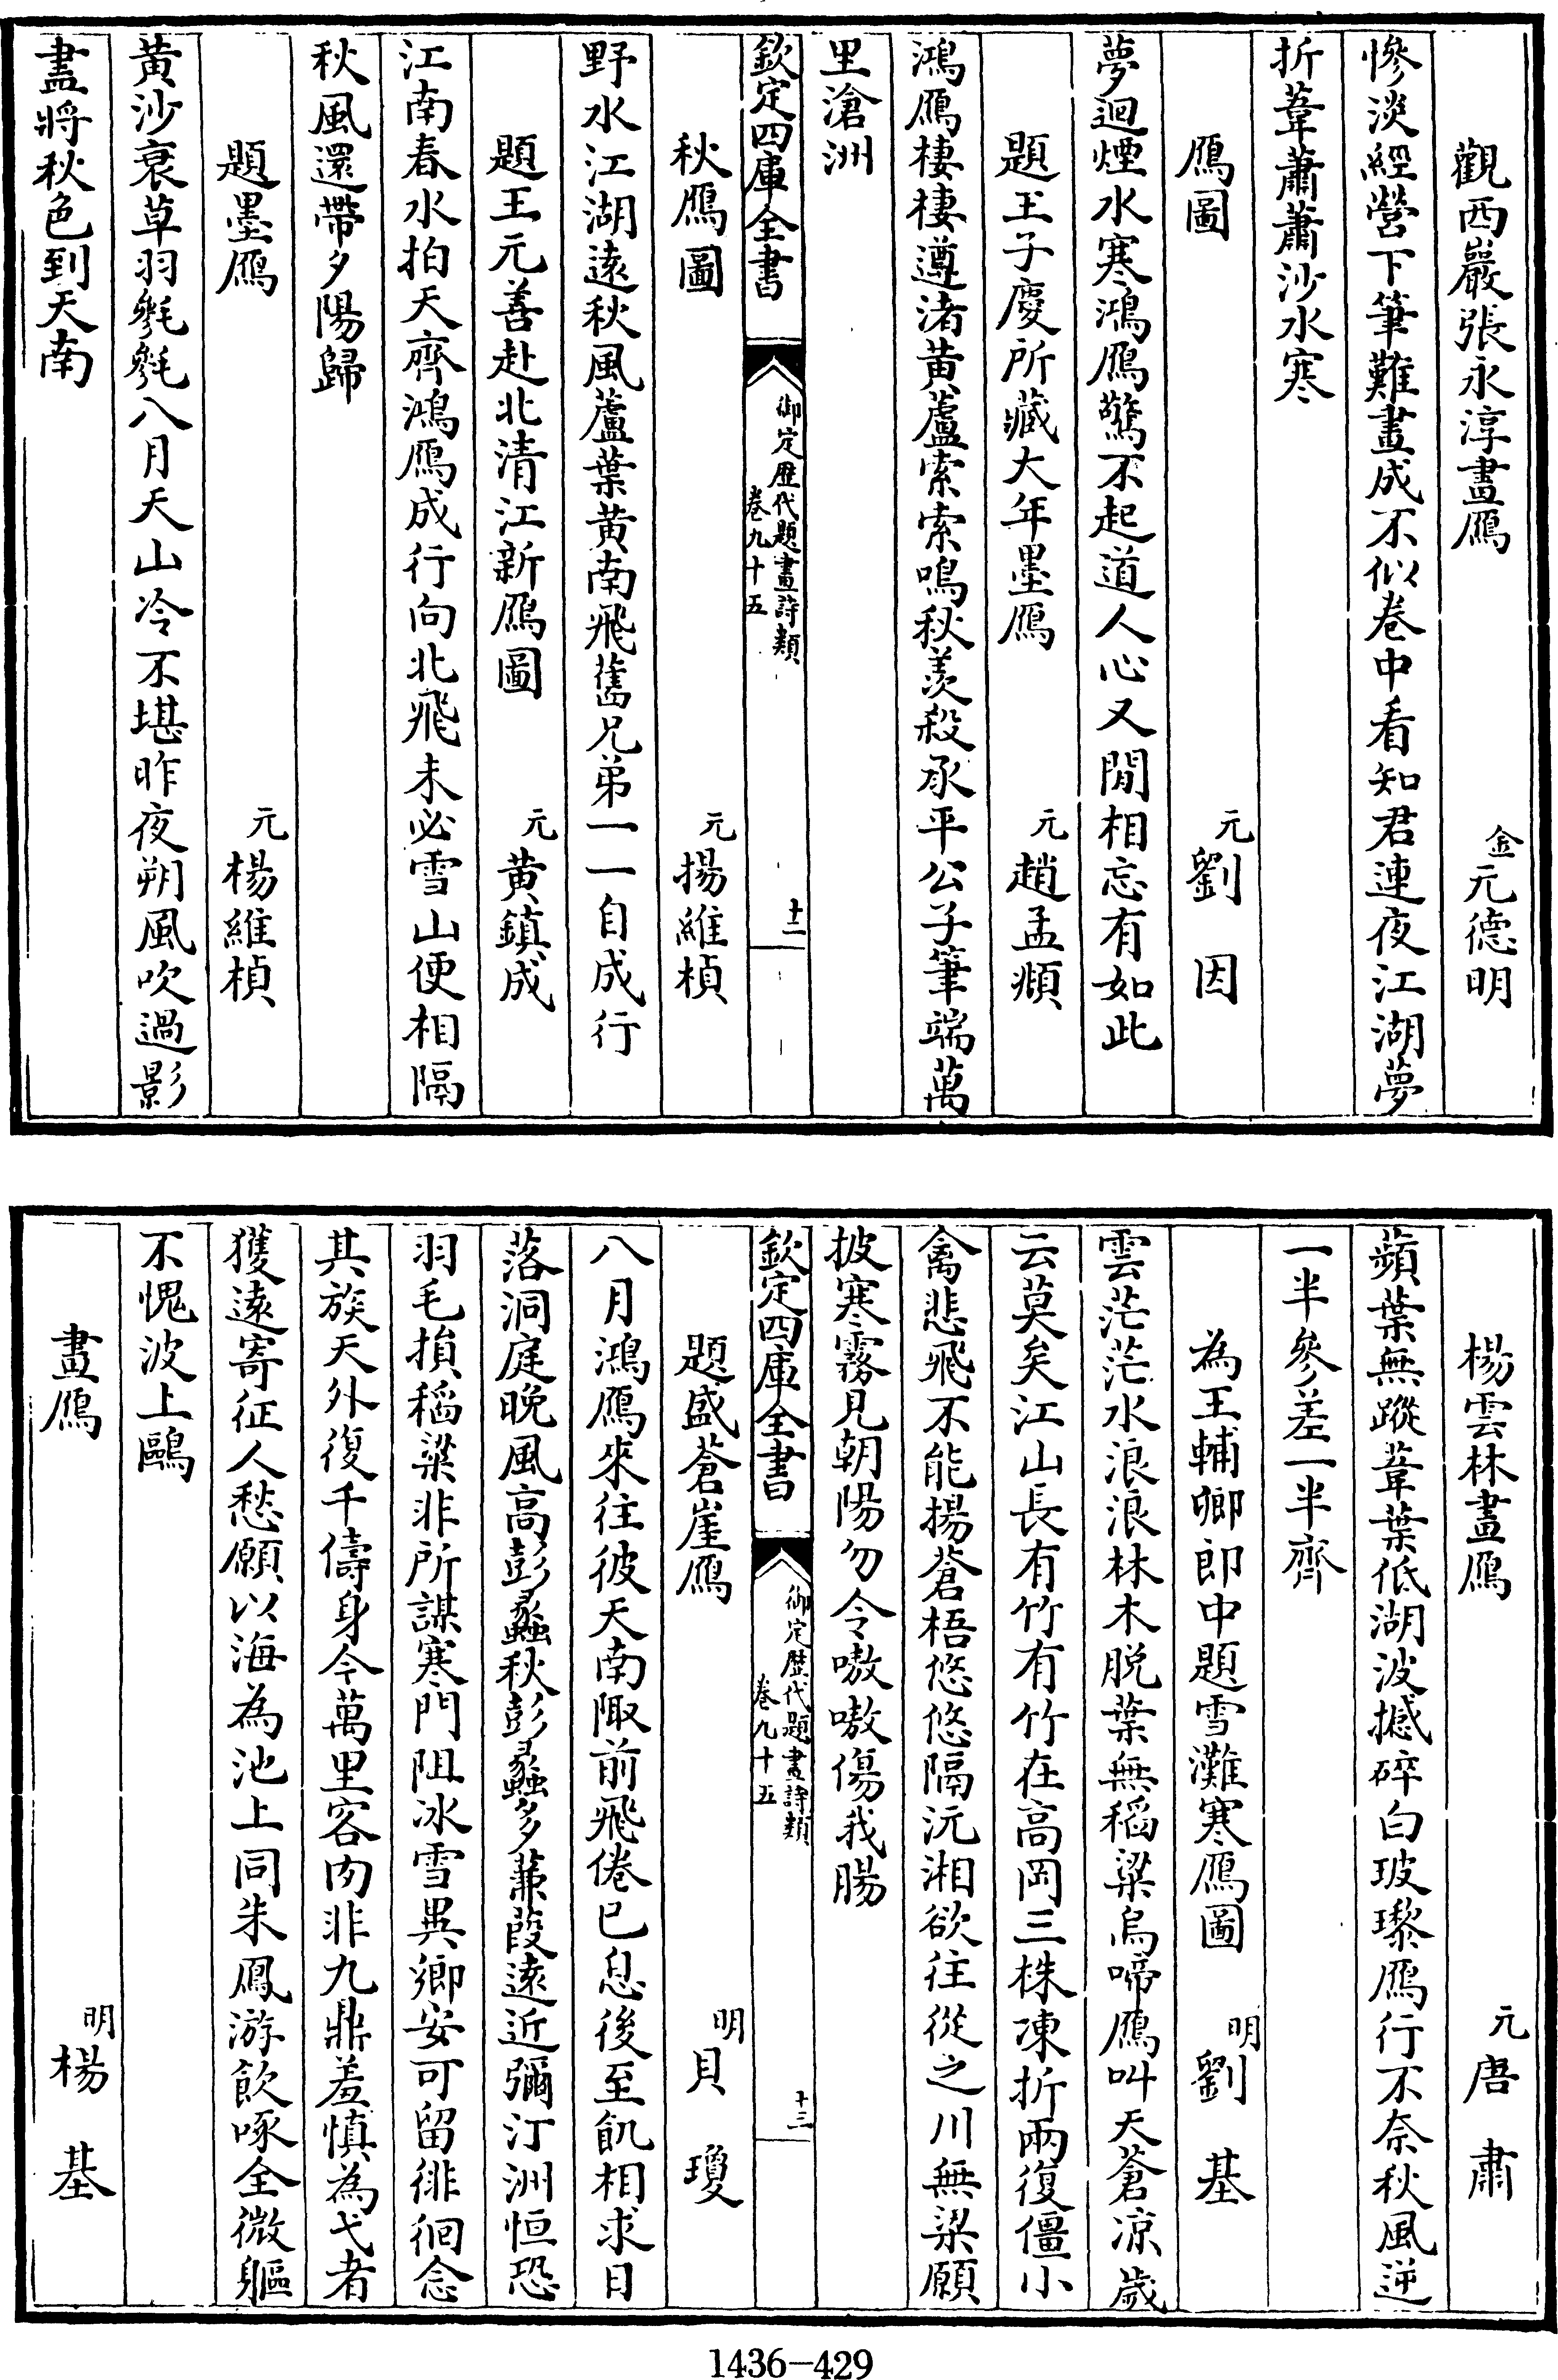 觀西巖張永淳畫鴈　金元德明
慘淡經營下筆難畫成不似卷中看知君連夜江湖夢
折葦蕭蕭沙水寒
鴈圖　元劉因
夢迴煙水寒鴻鴈驚不起道人心又閒相忘有如此
題王子慶所藏大年墨鴈　元趙孟頫
鴻鴈棲棲遵渚黄蘆索索鳴秋羨殺承平公子筆端萬
里滄洲
欽定四庫全書　御定歴代題畫詩類卷九十五　十二
秋鴈圖　元楊維楨
野水江湖遠秋風蘆葉黄南飛舊兄弟一一自成行
題王元善赴北清江新鴈圖　元黄鎮成
江南春水拍天齊鴻鴈成行向北飛未必雪山便相隔
秋風還帶夕陽歸
題墨鴈　元楊維楨
黄沙衰草羽毿毿八月天山冷不堪昨夜朔風吹過影
盡將秋色到天南
楊雲林畫鴈　元唐肅
蘋葉無蹤葦葉低湖波撼碎白玻瓈鴈行不奈秋風逆
一半參差一半齊
為王輔卿郎中題雪灘寒鴈圖　明劉基
雲茫茫水浪浪林木脱葉無稻粱烏啼鴈叫天蒼凉歲
云莫矣江山長有竹有竹在高岡三株凍折兩復僵小
禽悲飛不能揚蒼梧悠悠隔沅湘欲往從之川無梁願
披寒霧見朝陽勿令嗷嗷傷我腸
欽定四庫全書　御定歴代題畫詩類卷九十五　十三
題盛蒼崖鴈　明貝瓊
八月鴻鴈來往彼天南陬前飛倦已息後至飢相求日
落洞庭晚風高彭蠡秋彭蠡多蒹葭遠近彌汀洲恒恐
羽毛損稻粱非所謀寒門阻冰雪異鄉安可留徘徊念
其族天外復千儔身今萬里客肉非九鼎羞慎為弋者
獲遠寄征人愁願以海為池上同朱鳳游飲啄全微軀
不愧波上鷗
畫鴈　明楊基
1436-429